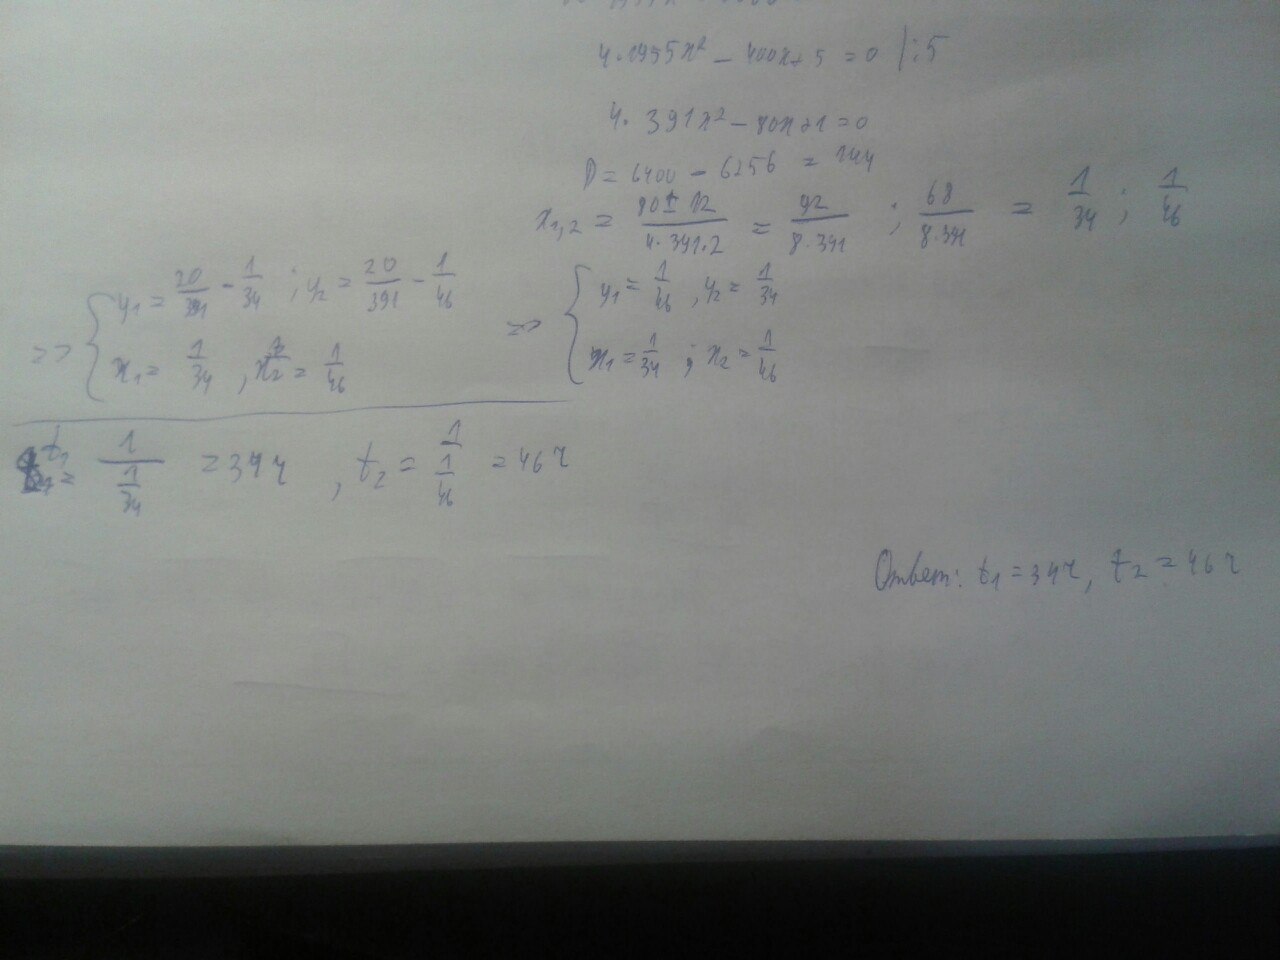 4·1955x² - 400x+5 = 0 |:5
4·391x² - 80x+1=0
D = 6400 - 6256 = 144
x₁,₂ = (80±12)/(4·391·2) = 92/(8·391) ; 68/(8·391) = 1/34 ; 1/46
=> { y₁ = 20/391 - 1/34 ; y₂ = 20/391 - 1/46
x₁ = 1/34 , x₂ = 1/46
=> { y₁ = 1/46 , y₂ = 1/34
x₁ = 1/34 ; x₂ = 1/46
t₁ = 1/(1/34) = 34 ч , t₂ = 1/(1/46) = 46 ч
Ответ: t₁ = 34 ч, t₂ = 46 ч